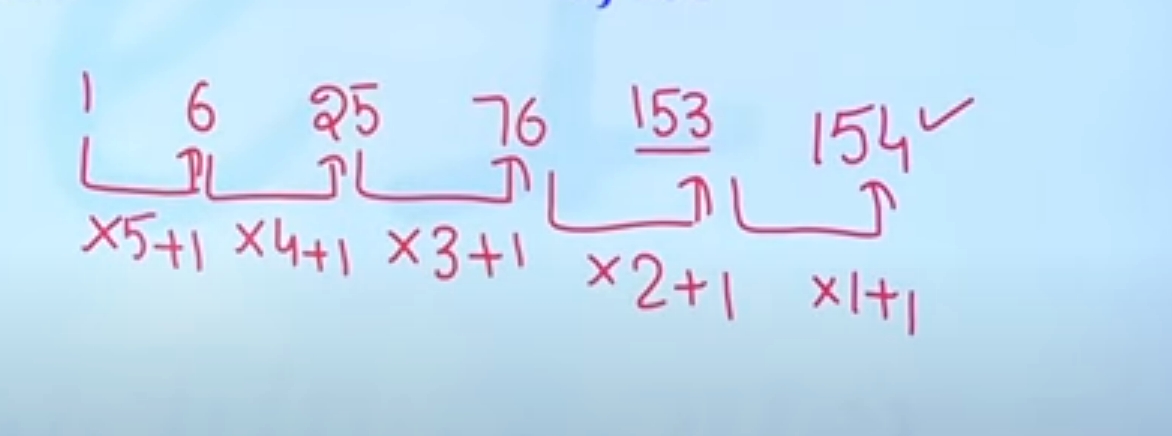 1 6 25 76 153 154 ✓
×5+1 ×4+1 ×3+1 ×2+1 ×1+1